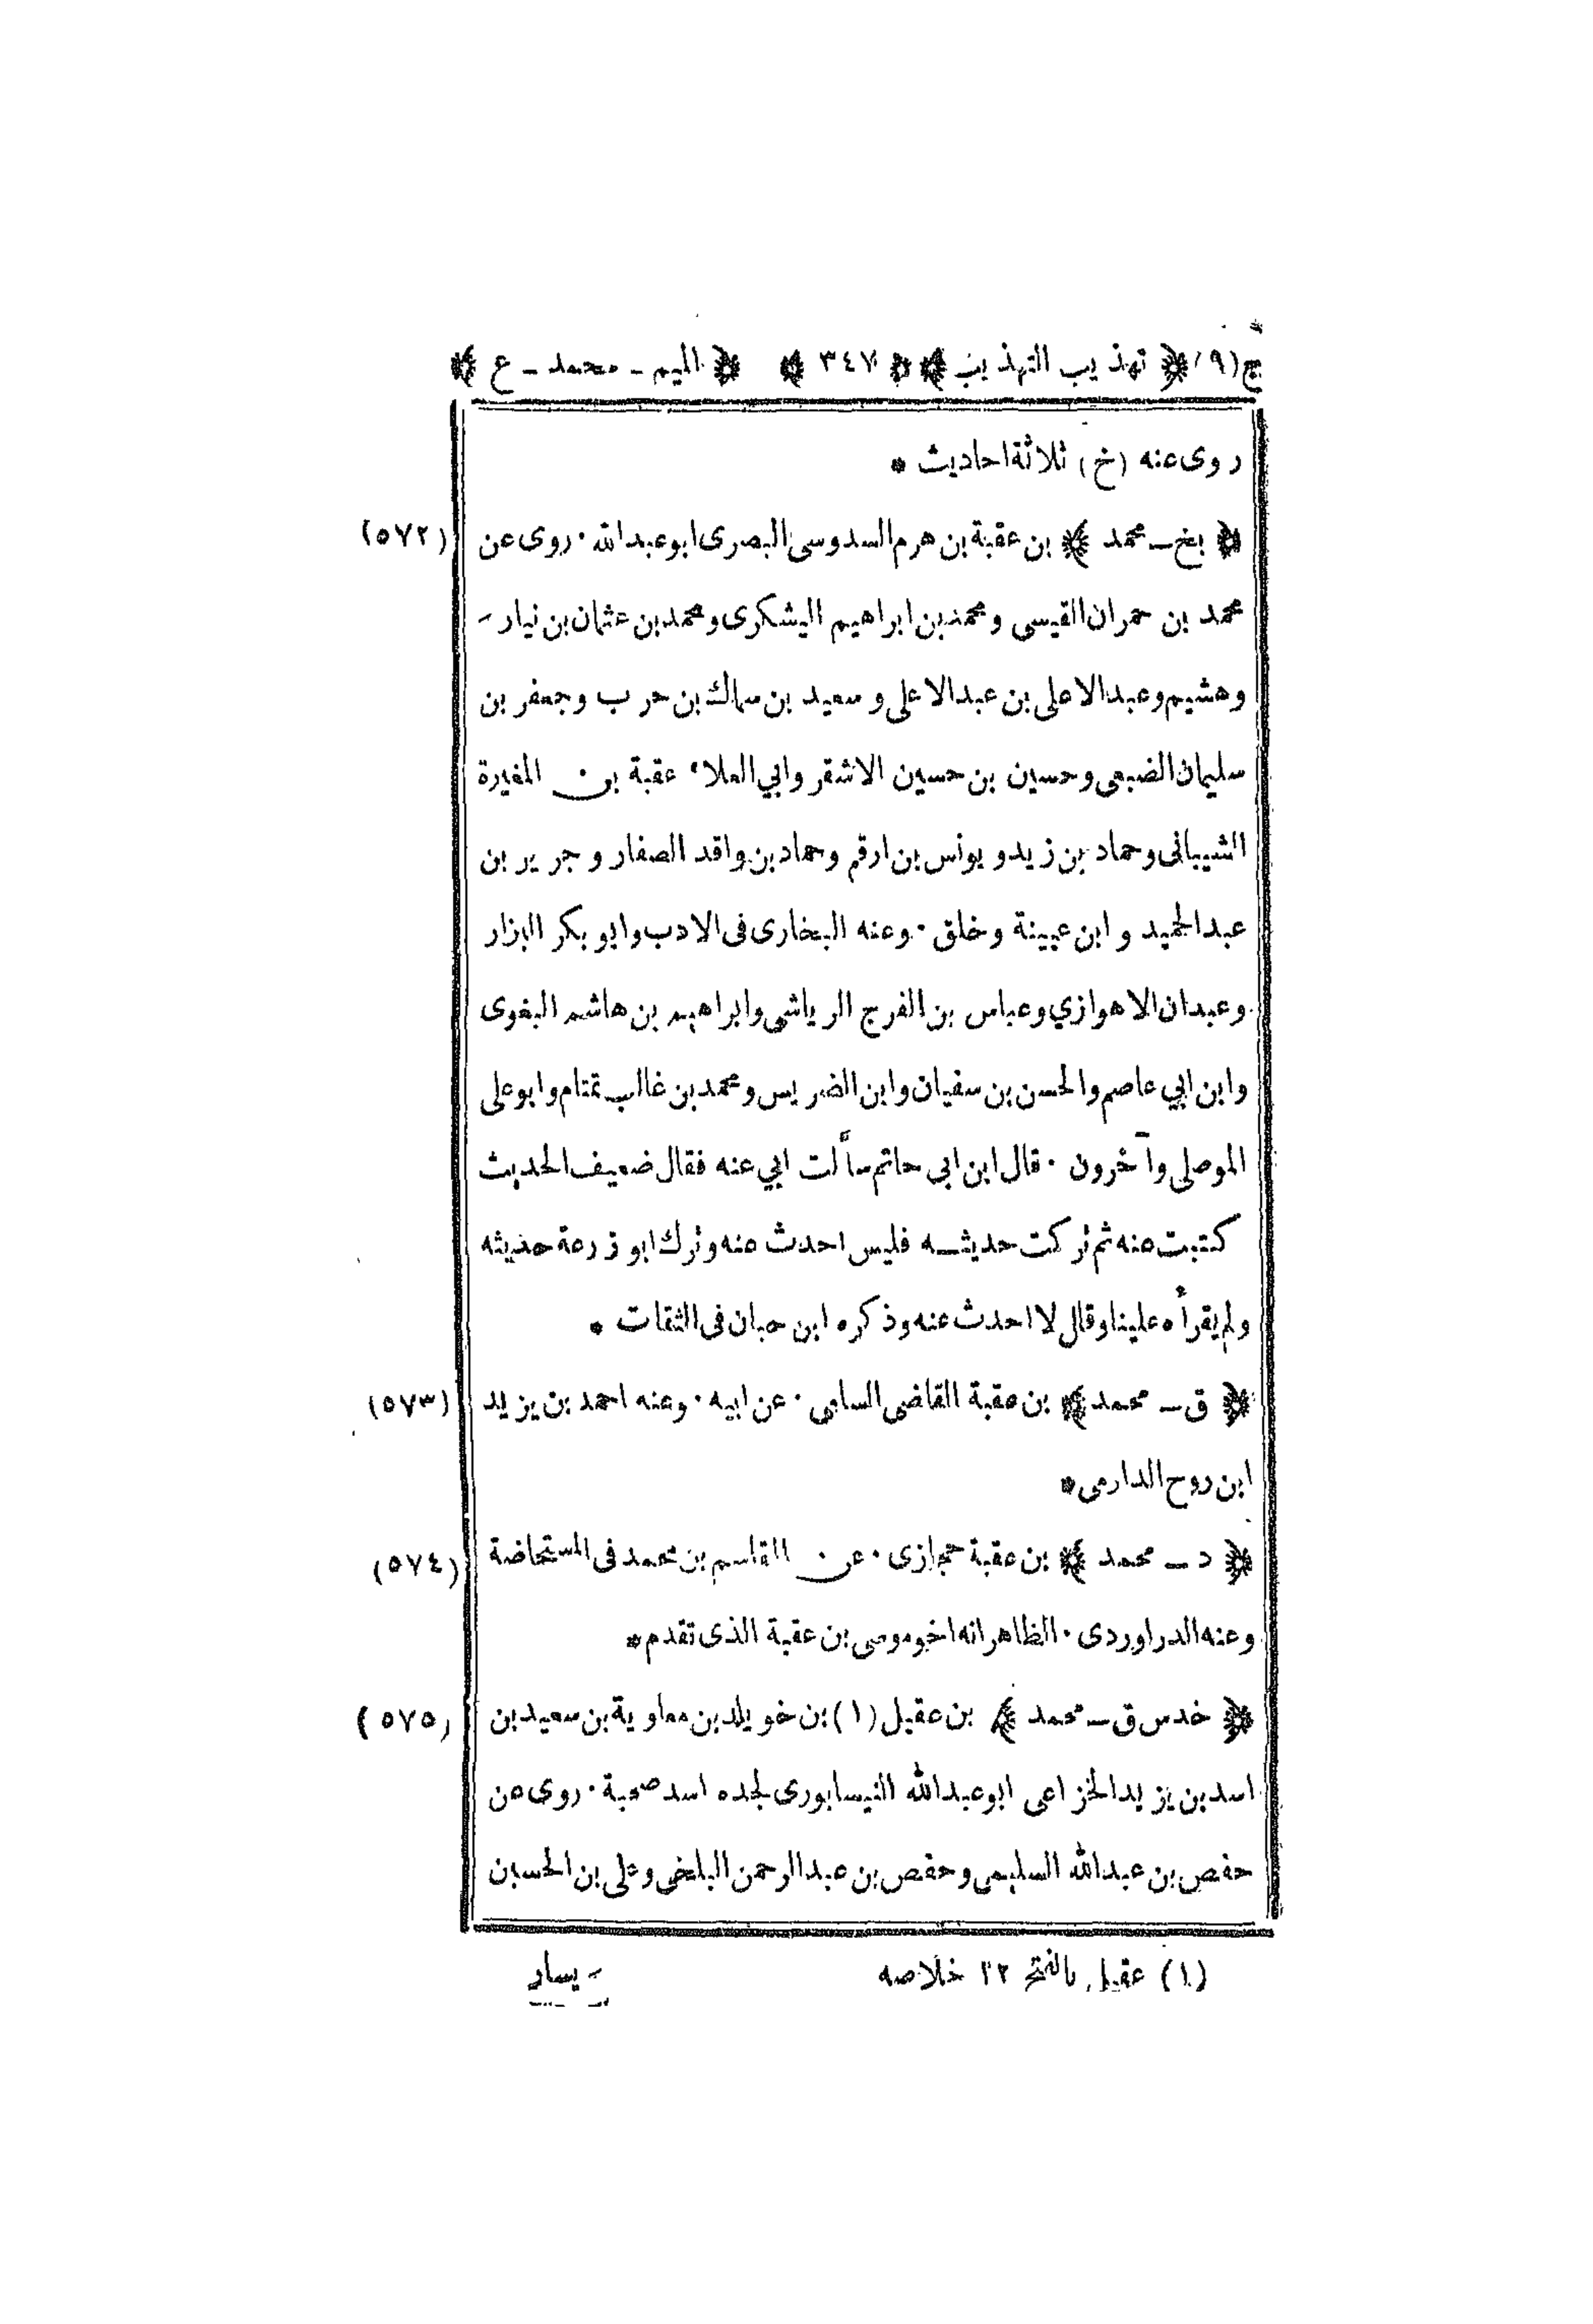 ج(٩) ﴿ تهذيب التهذيب ﴾ ﴿ ٣٤٧ ﴾ ﴿ الميم ـ محمد ـ ع ﴾
روى عنه (خ) ثلاثة احاديث *
﴿ بخ ـ محمد ﴾ بن عقبة بن هرم السدوسى البصرى ابو عبد الله · روى عن (٥٧٢)
محمد بن حمران القيسي ومحمد بن ابراهيم اليشكرى ومحمد بن عثمان بن نيار ـ
وهشيم وعبد الاعلى بن عبد الاعلى و سعيد بن سماك بن حرب وجعفر بن
سليمان الضبعي وحسين بن حسين الاشقر وابي العلاء عقبة بن المغيرة
الشيبانى وحماد بن زيد و يونس بن ارقم وحماد بن واقد الصفار و جرير بن
عبد الحميد و ابن عيينة وخلق · وعنه البخارى فى الادب وابو بكر البزار
وعبدان الاهوازي وعباس بن الفرج الرياشى وابراهيم بن هاشم البغوى
وابن ابي عاصم والحسن بن سفيان وابن الضريس ومحمد بن غالب تمتام وابو على
الموصلى وآخرون · قال ابن ابى حاتم سألت ابي عنه فقال ضعيف الحديث
كتبت عنه ثم تركت حديثه فليس احدث عنه وترك ابو زرعة حديثه
ولم يقرأه علينا وقال لا احدث عنه وذكره ابن حبان فى الثقات *
﴿ ق ـ محمد ﴾ بن عقبة القاضى السامى · عن ابيه · وعنه احمد بن يزيد (٥٧٣)
ابن روح الدارمى *
﴿ د ـ محمد ﴾ بن عقبة حجازى · عن القاسم بن محمد فى المستحاضة (٥٧٤)
وعنه الدراوردى · الظاهر انه اخو موسى بن عقبة الذى تقدم *
﴿ خد س ق ـ محمد ﴾ بن عقيل (١) بن خويلد بن معاوية بن سعيد بن (٥٧٥)
اسد بن يزيد الخزاعى ابو عبد الله النيسابورى لجده اسد صحبة · روى عن
حفص بن عبد الله السليمى وحفص بن عبد الرحمن البلخى وعلى بن الحسين
(١) عقيل بالفتح ١٢ خلاصه ـ يسار